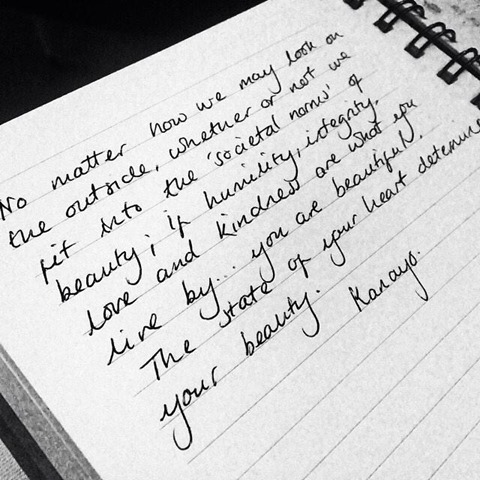 No matter how we may look on
the outside, whether or not we
fit into the 'societal norms' of
beauty; if humility, integrity,
love and kindness are what you
live by... you are beautiful.
The state of your heart determines
your beauty. Kanayo.